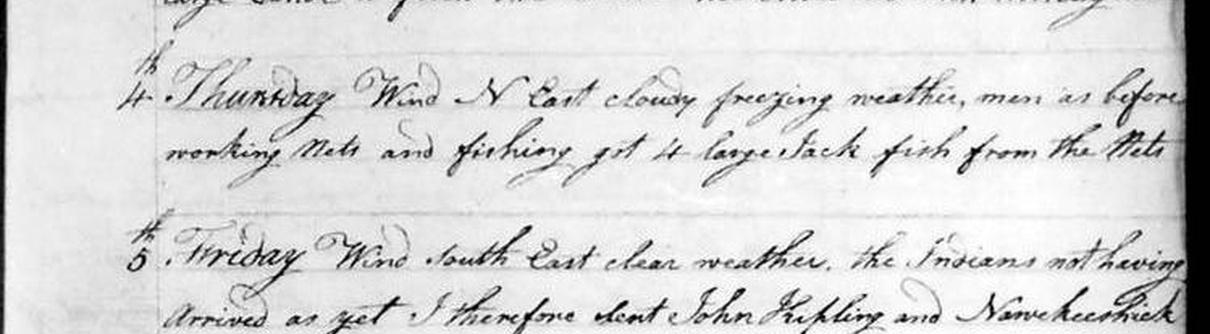 4th Thursday Wind N East cloudy freezing weather, men as before
working Nets and fishing got 4 large Jack fish from the Nets
5th Friday Wind South East clear weather. the Indians not having
Arrived as yet I therefore sent John Kipling and Nawekeeshick